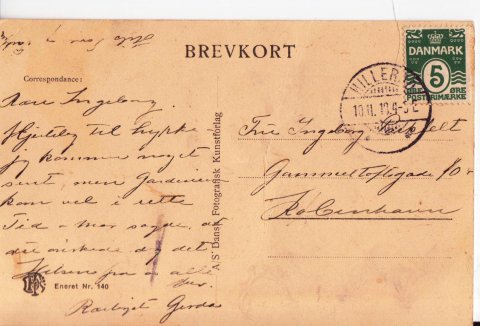 BREVKORT
Correspondance:
Kære Ingeborg
Hjertelig til Lykke
jeg kommer noget
sent men Gardinerne
kom vel i rette
Tid - Mor sagde, at
du ønskede dig det
Hilsen fra alle
her.
Kærligst Gerda
Eneret Nr. 140
A/S Dansk Fotografisk Kunstforlag
DANMARK
5
ØRE
POSTFRIMÆRKE
HILLER
Frk Ingeborg
Gammeltoftsgade 10
København